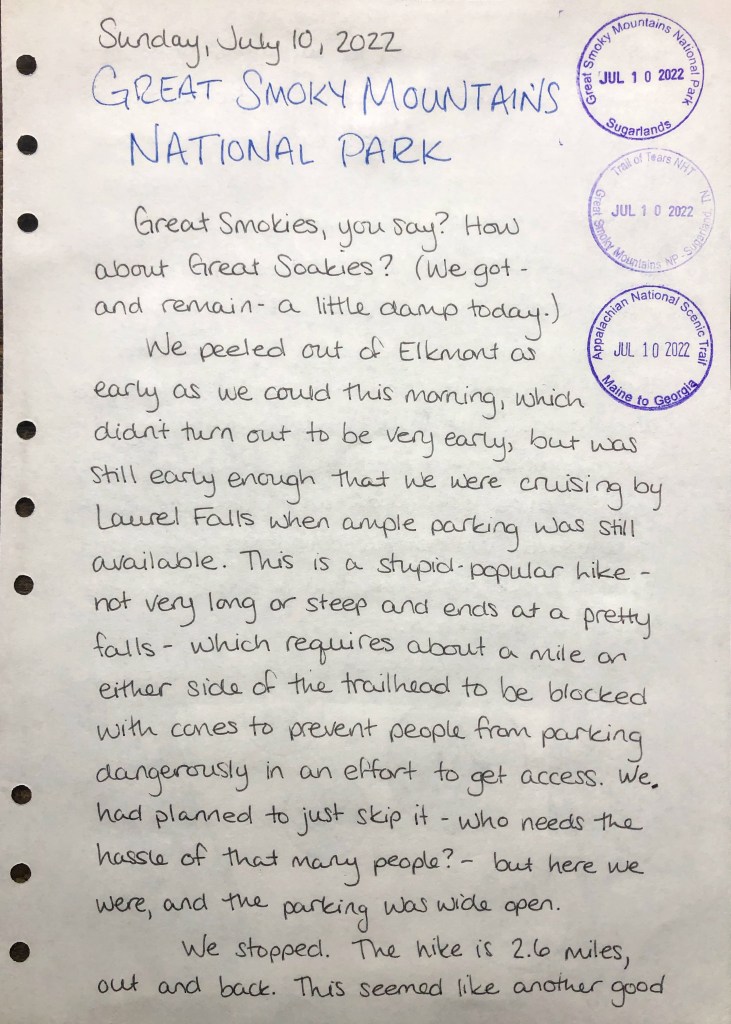 Sunday, July 10, 2022
GREAT SMOKY MOUNTAINS
NATIONAL PARK
Great Smoky Mountains National Park
JUL 10 2022
Sugarlands
Trail of Tears NHT
JUL 10 2022
Great Smoky Mountains NP - Sugarland, TN
Appalachian National Scenic Trail
JUL 10 2022
Maine to Georgia
Great Smokies, you say? How
about Great Soakies? (We got -
and remain - a little damp today.)
We peeled out of Elkmont as
early as we could this morning, which
didn't turn out to be very early, but was
still early enough that we were cruising by
Laurel Falls when ample parking was still
available. This is a stupid-popular hike -
not very long or steep and ends at a pretty
falls - which requires about a mile on
either side of the trailhead to be blocked
with cones to prevent people from parking
dangerously in an effort to get access. We
had planned to just skip it - who needs the
hassle of that many people? - but here we
were, and the parking was wide open.
We stopped. The hike is 2.6 miles,
out and back. This seemed like another good